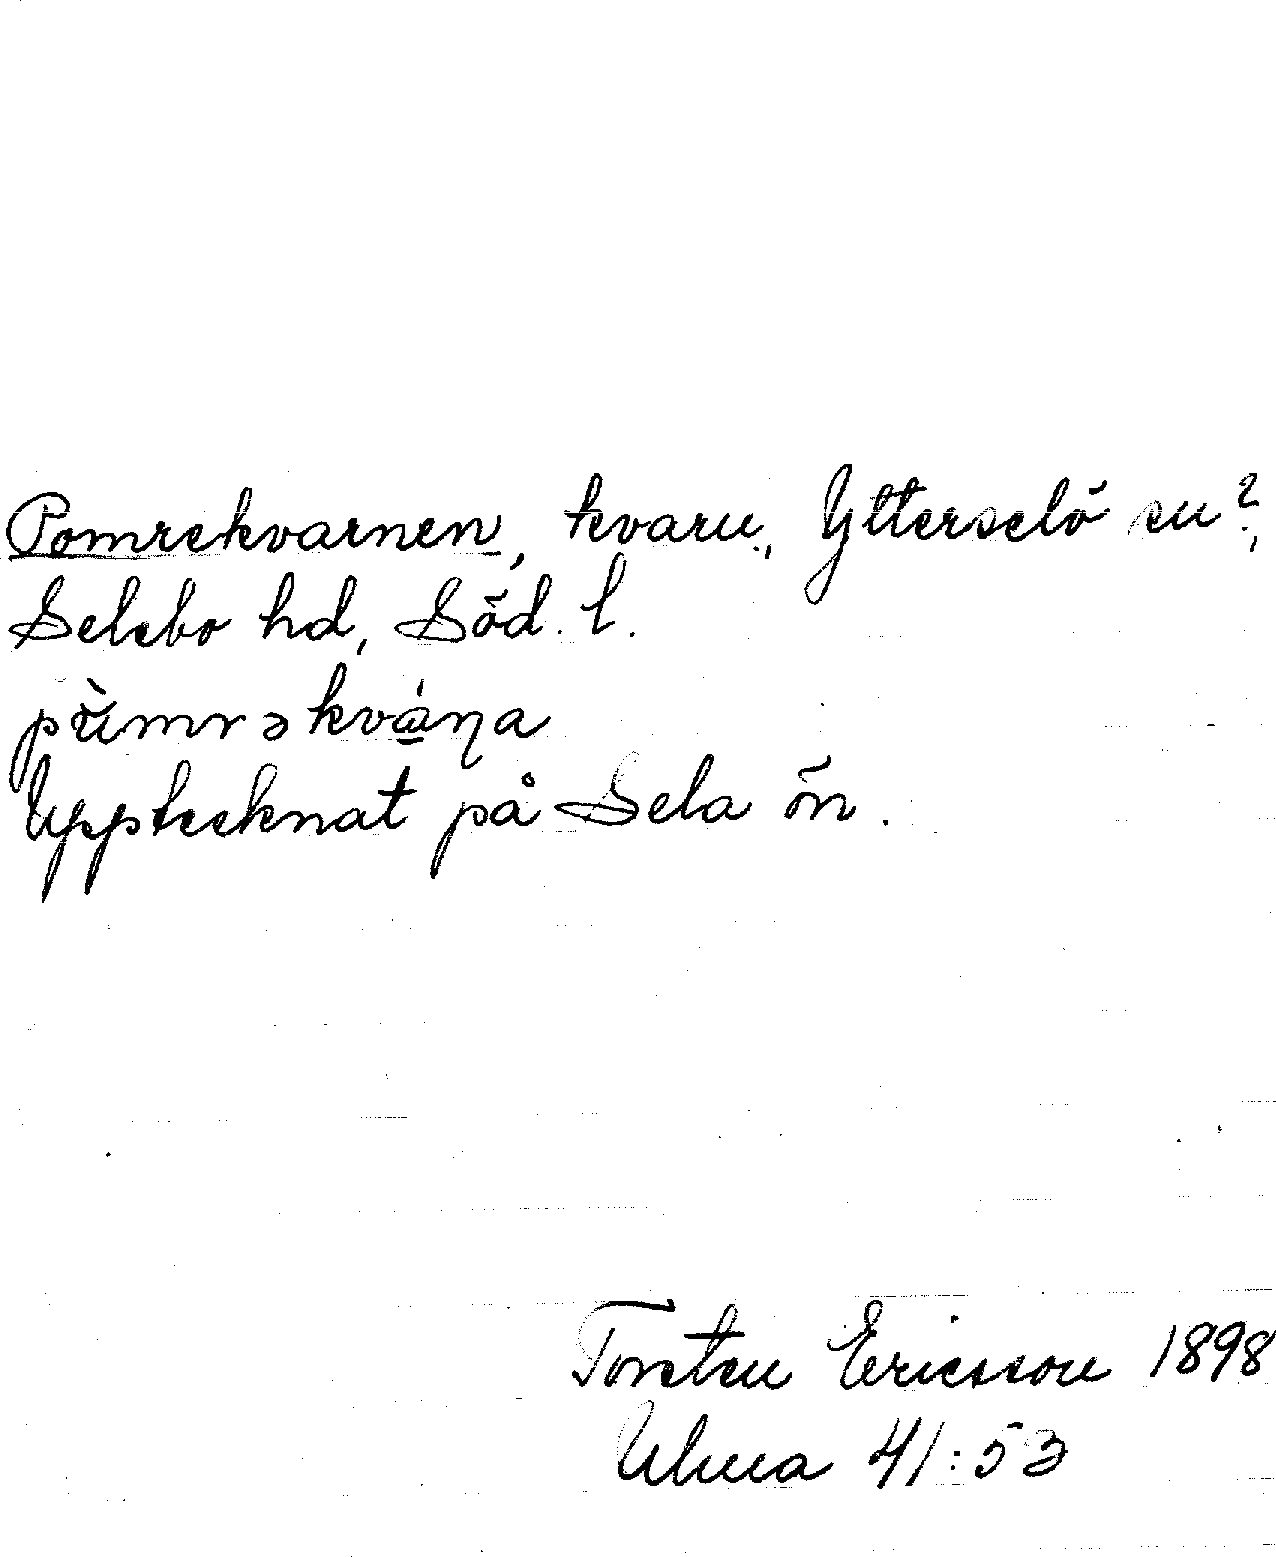 Pomrekvarnen, kvarn, Ytterselö sn?,
Selebo hd, Söd. l.
Upptecknat på Sela ön.
Torsten Ericsson 1898
Ulma 41:53